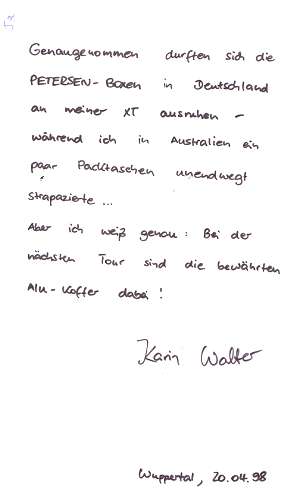 Genaugenommen durften sich die
PETERSEN-Boxen in Deutschland
an meiner XT ausruhen –
während ich in Australien ein
paar Packtaschen unendwegt
strapazierte ...
Aber ich weiß genau: Bei der
nächsten Tour sind die bewährten
Alu-Koffer dabei!
Karin Walter
Wuppertal, 20.04.98